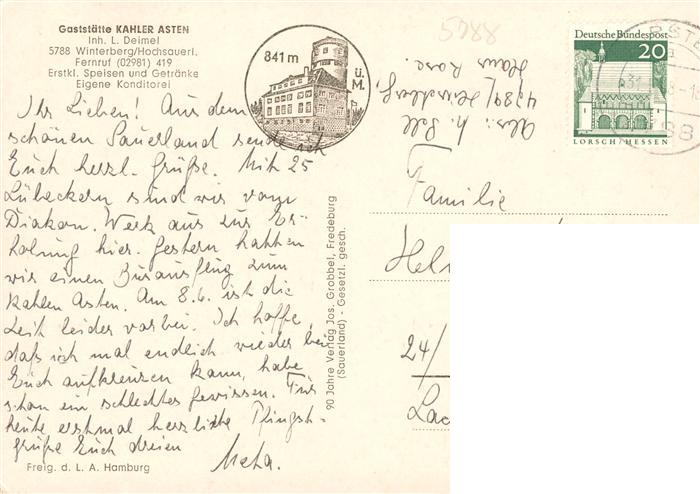 Gaststätte KAHLER ASTEN
Inh. L. Deimel
5788 Winterberg/Hochsauerl.
Fernruf (02981) 419
Erstkl. Speisen und Getränke
Eigene Konditorei
841 m
ü.
M.
5788
Deutsche Bundespost
20
LORSCH/HESSEN
Ihr Lieben! Aus dem
schönen Sauerland sende ich
Euch herzl. Grüße. Mit 25
Lübeckern sind wir vom
Diakon. Werk aus zur Er-
holung hier. Gestern hatten
wir einen Busausflug zum
Kahlen Asten. Am 8.6. ist die
Zeit leider vorbei. Ich hoffe,
daß ich mal endlich wieder bei
Euch aufkreuzen kann, habe
schon ein schlechtes Gewissen. Für
heute erstmal herzliche Pfingst-
grüße Euch dreien
Meta.
Freig. d. L. A. Hamburg
90 Jahre Verlag Jos. Grobbel, Fredeburg
(Sauerland) - Gesetzl. gesch.
Abs.: h.
Haus Rose.
Familie
Hel
24/